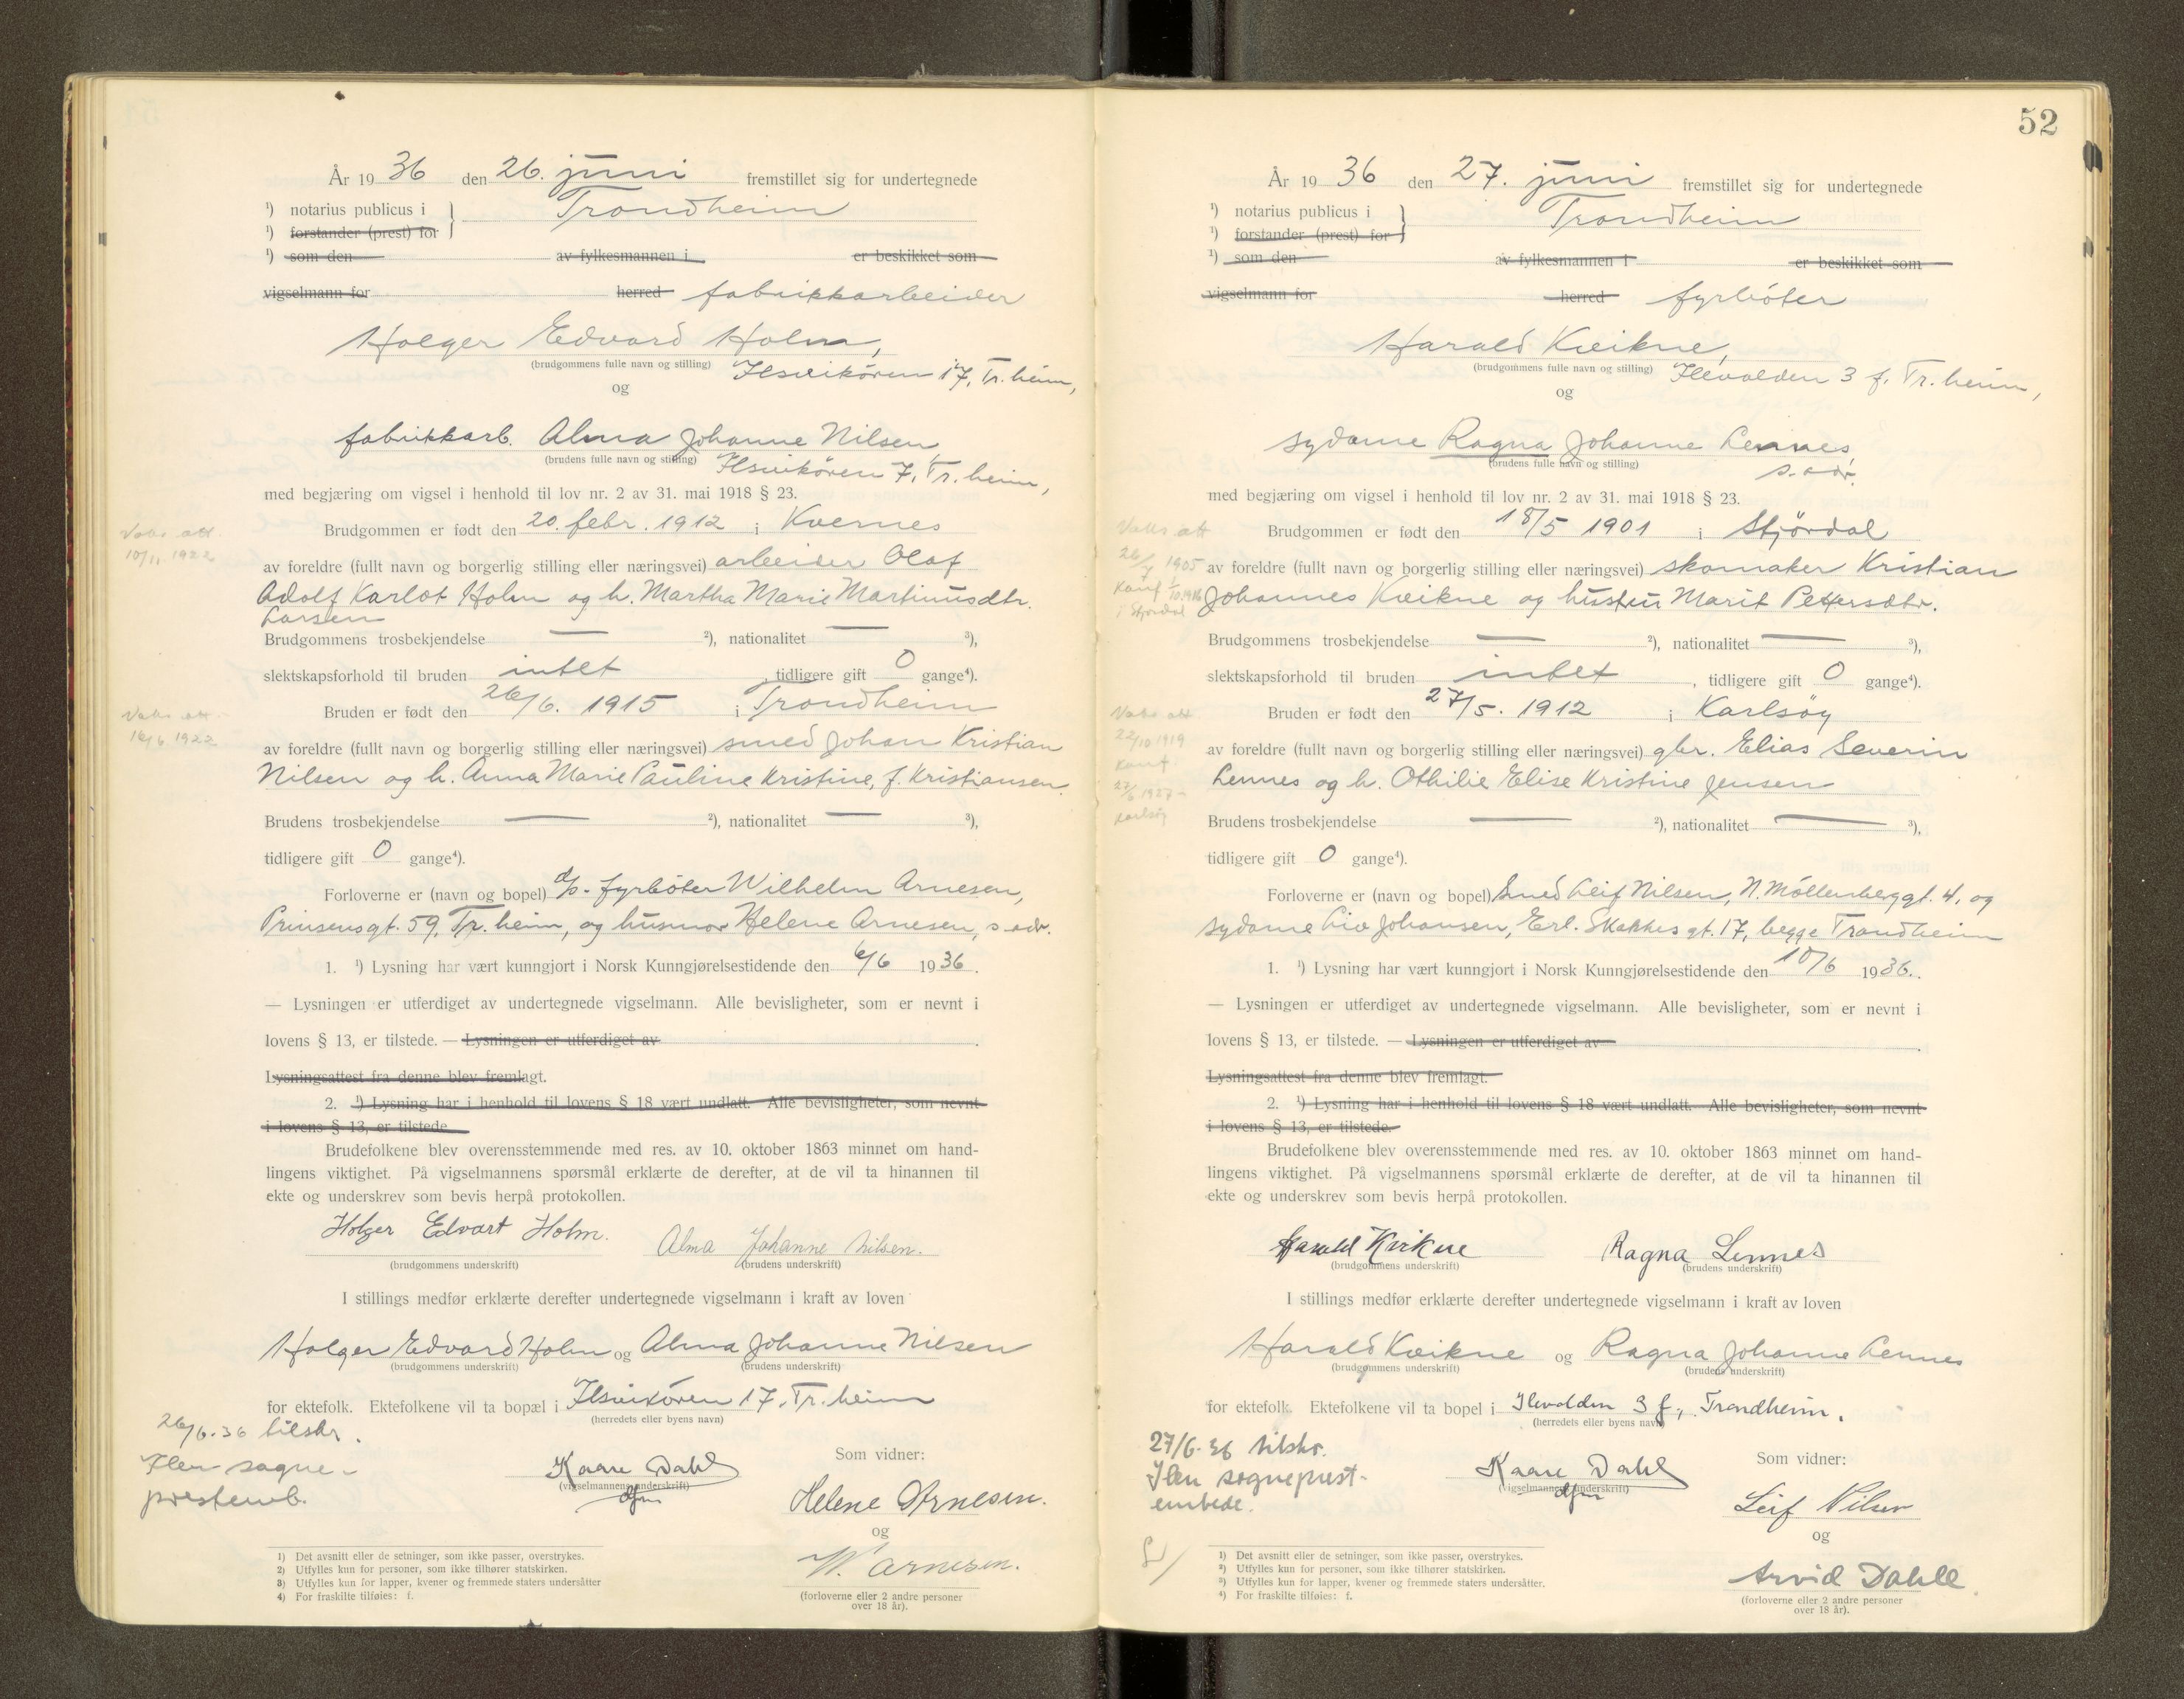 År 1936 den 26. juni fremstillet sig for undertegnede
¹) notarius publicus i } Trondheim
¹) forstander (prest) for
¹) som den av fylkesmannen i er beskikket som
vigselmann for herred fabrikkarbeider
Holger Edvard Holm,
(brudgommens fulle navn og stilling) Ilsvikören 17, Tr.heim,
og
fabrikkarb. Alma Johanne Nilsen
(brudens fulle navn og stilling) Ilsvikören 7, Tr.heim,
med begjæring om vigsel i henhold til lov nr. 2 av 31. mai 1918 § 23.
Vaks. att. 10/11 1922
Brudgommen er født den 20. febr. 1912 i Kvernes
av foreldre (fullt navn og borgerlig stilling eller næringsvei) arbeider Olaf
Adolf Karlot Holm og h. Martha Marie Martinusdtr.
Larsen
Brudgommens trosbekjendelse — ²), nationalitet — ³),
slektskapsforhold til bruden intet, tidligere gift 0 gange⁴).
Vaks. att. 16/6 1922
Bruden er født den 26/6. 1915 i Trondheim
av foreldre (fullt navn og borgerlig stilling eller næringsvei) smed Johan Kristian
Nilsen og h. Anna Marie Pauline Kristine, f. Kristiansen.
Brudens trosbekjendelse — ²), nationalitet — ³),
tidligere gift 0 gange⁴).
Forloverne er (navn og bopel) d/s. fyrböter Wilhelm Arnesen,
Prinsensgt. 59, Tr.heim, og husmor Helene Arnesen, s. adr.
1. ¹) Lysning har vært kunngjort i Norsk Kunngjørelsestidende den 6/6 1936.
— Lysningen er utferdiget av undertegnede vigselmann. Alle bevisligheter, som er nevnt i
lovens § 13, er tilstede. — Lysningen er utferdiget av .
Lysningsattest fra denne blev fremlagt.
2. ¹) Lysning har i henhold til lovens § 18 vært undlatt. Alle bevisligheter, som nevnt
i lovens § 13, er tilstede.
Brudefolkene blev overensstemmende med res. av 10. oktober 1863 minnet om hand-
lingens viktighet. På vigselmannens spørsmål erklærte de derefter, at de vil ta hinannen til
ekte og underskrev som bevis herpå protokollen.
Holger Edvart Holm. Alma Johanne Nilsen.
(brudgommens underskrift) (brudens underskrift)
I stillings medfør erklærte derefter undertegnede vigselmann i kraft av loven
Holger Edvard Holm og Alma Johanne Nilsen
(brudgommens underskrift) (brudens underskrift)
for ektefolk. Ektefolkene vil ta bopæl i Ilsvikören 17, Tr.heim
(herredets eller byens navn)
26/6.36 tilskr.
Ilen sogne-
prestemb.
Kaare Dahl
(vigselmannens underskrift)
dfm
Som vidner:
Helene Arnesen.
og
W. Arnesen.
(forloverne eller 2 andre personer
over 18 år).
1) Det avsnitt eller de setninger, som ikke passer, overstrykes.
2) Utfylles kun for personer, som ikke tilhører statskirken.
3) Utfylles kun for lapper, kvener og fremmede staters undersåtter
4) For fraskilte tilføies: f.
52
År 1936 den 27. juni fremstillet sig for undertegnede
¹) notarius publicus i } Trondheim
¹) forstander (prest) for
¹) som den av fylkesmannen i er beskikket som
vigselmann for herred fyrböter
Harald Kvikne,
(brudgommens fulle navn og stilling) Ilevolden 3 f, Tr.heim,
og
sydame Ragna Johanne Lennes,
(brudens fulle navn og stilling) s. adr.
med begjæring om vigsel i henhold til lov nr. 2 av 31. mai 1918 § 23.
Vaks. att
26/7 1905
Konf 1/10.1916
i Stjördal
Brudgommen er født den 18/5 1901 i Stjördal
av foreldre (fullt navn og borgerlig stilling eller næringsvei) skomaker Kristian
Johannes Kvikne og hustru Marit Pettersdtr.
Brudgommens trosbekjendelse — ²), nationalitet — ³),
slektskapsforhold til bruden intet, tidligere gift 0 gange⁴).
Vaks. att.
22/10 1919
Konf.
27/6 1927 -
Karlsöy
Bruden er født den 27/5. 1912 i Karlsöy
av foreldre (fullt navn og borgerlig stilling eller næringsvei) gbr. Elias Severin
Lennes og h. Othilie Elise Kristine Jensen
Brudens trosbekjendelse — ²), nationalitet — ³),
tidligere gift 0 gange⁴).
Forloverne er (navn og bopel) Smed Leif Nilsen, N. Möllenberggt. 4, og
sydame Liv Johansen, Erl. Skakkes gt. 17, begge Trondheim
1. ¹) Lysning har vært kunngjort i Norsk Kunngjørelsestidende den 10/6 1936.
— Lysningen er utferdiget av undertegnede vigselmann. Alle bevisligheter, som er nevnt i
lovens § 13, er tilstede. — Lysningen er utferdiget av .
Lysningsattest fra denne blev fremlagt.
2. ¹) Lysning har i henhold til lovens § 18 vært undlatt. Alle bevisligheter, som nevnt
i lovens § 13, er tilstede.
Brudefolkene blev overensstemmende med res. av 10. oktober 1863 minnet om hand-
lingens viktighet. På vigselmannens spørsmål erklærte de derefter, at de vil ta hinannen til
ekte og underskrev som bevis herpå protokollen.
Harald Kvikne Ragna Lennes
(brudgommens underskrift) (brudens underskrift)
I stillings medfør erklærte derefter undertegnede vigselmann i kraft av loven
Harald Kvikne og Ragna Johanne Lennes
(brudgommens underskrift) (brudens underskrift)
for ektefolk. Ektefolkene vil ta bopel i Ilevolden 3 f, Trondheim.
(herredets eller byens navn)
27/6.36 tilskr.
Ilen sogneprest-
embede.
Kaare Dahl
(vigselmannens underskrift)
dfm
Som vidner:
Leif Nilsen
og
Arvid Dahll
(forloverne eller 2 andre personer
over 18 år).
¹) Det avsnitt eller de setninger, som ikke passer, overstrykes.
²) Utfylles kun for personer, som ikke tilhører statskirken.
³) Utfylles kun for lapper, kvener og fremmede staters undersåtter.
⁴) For fraskilte tilføies: f.